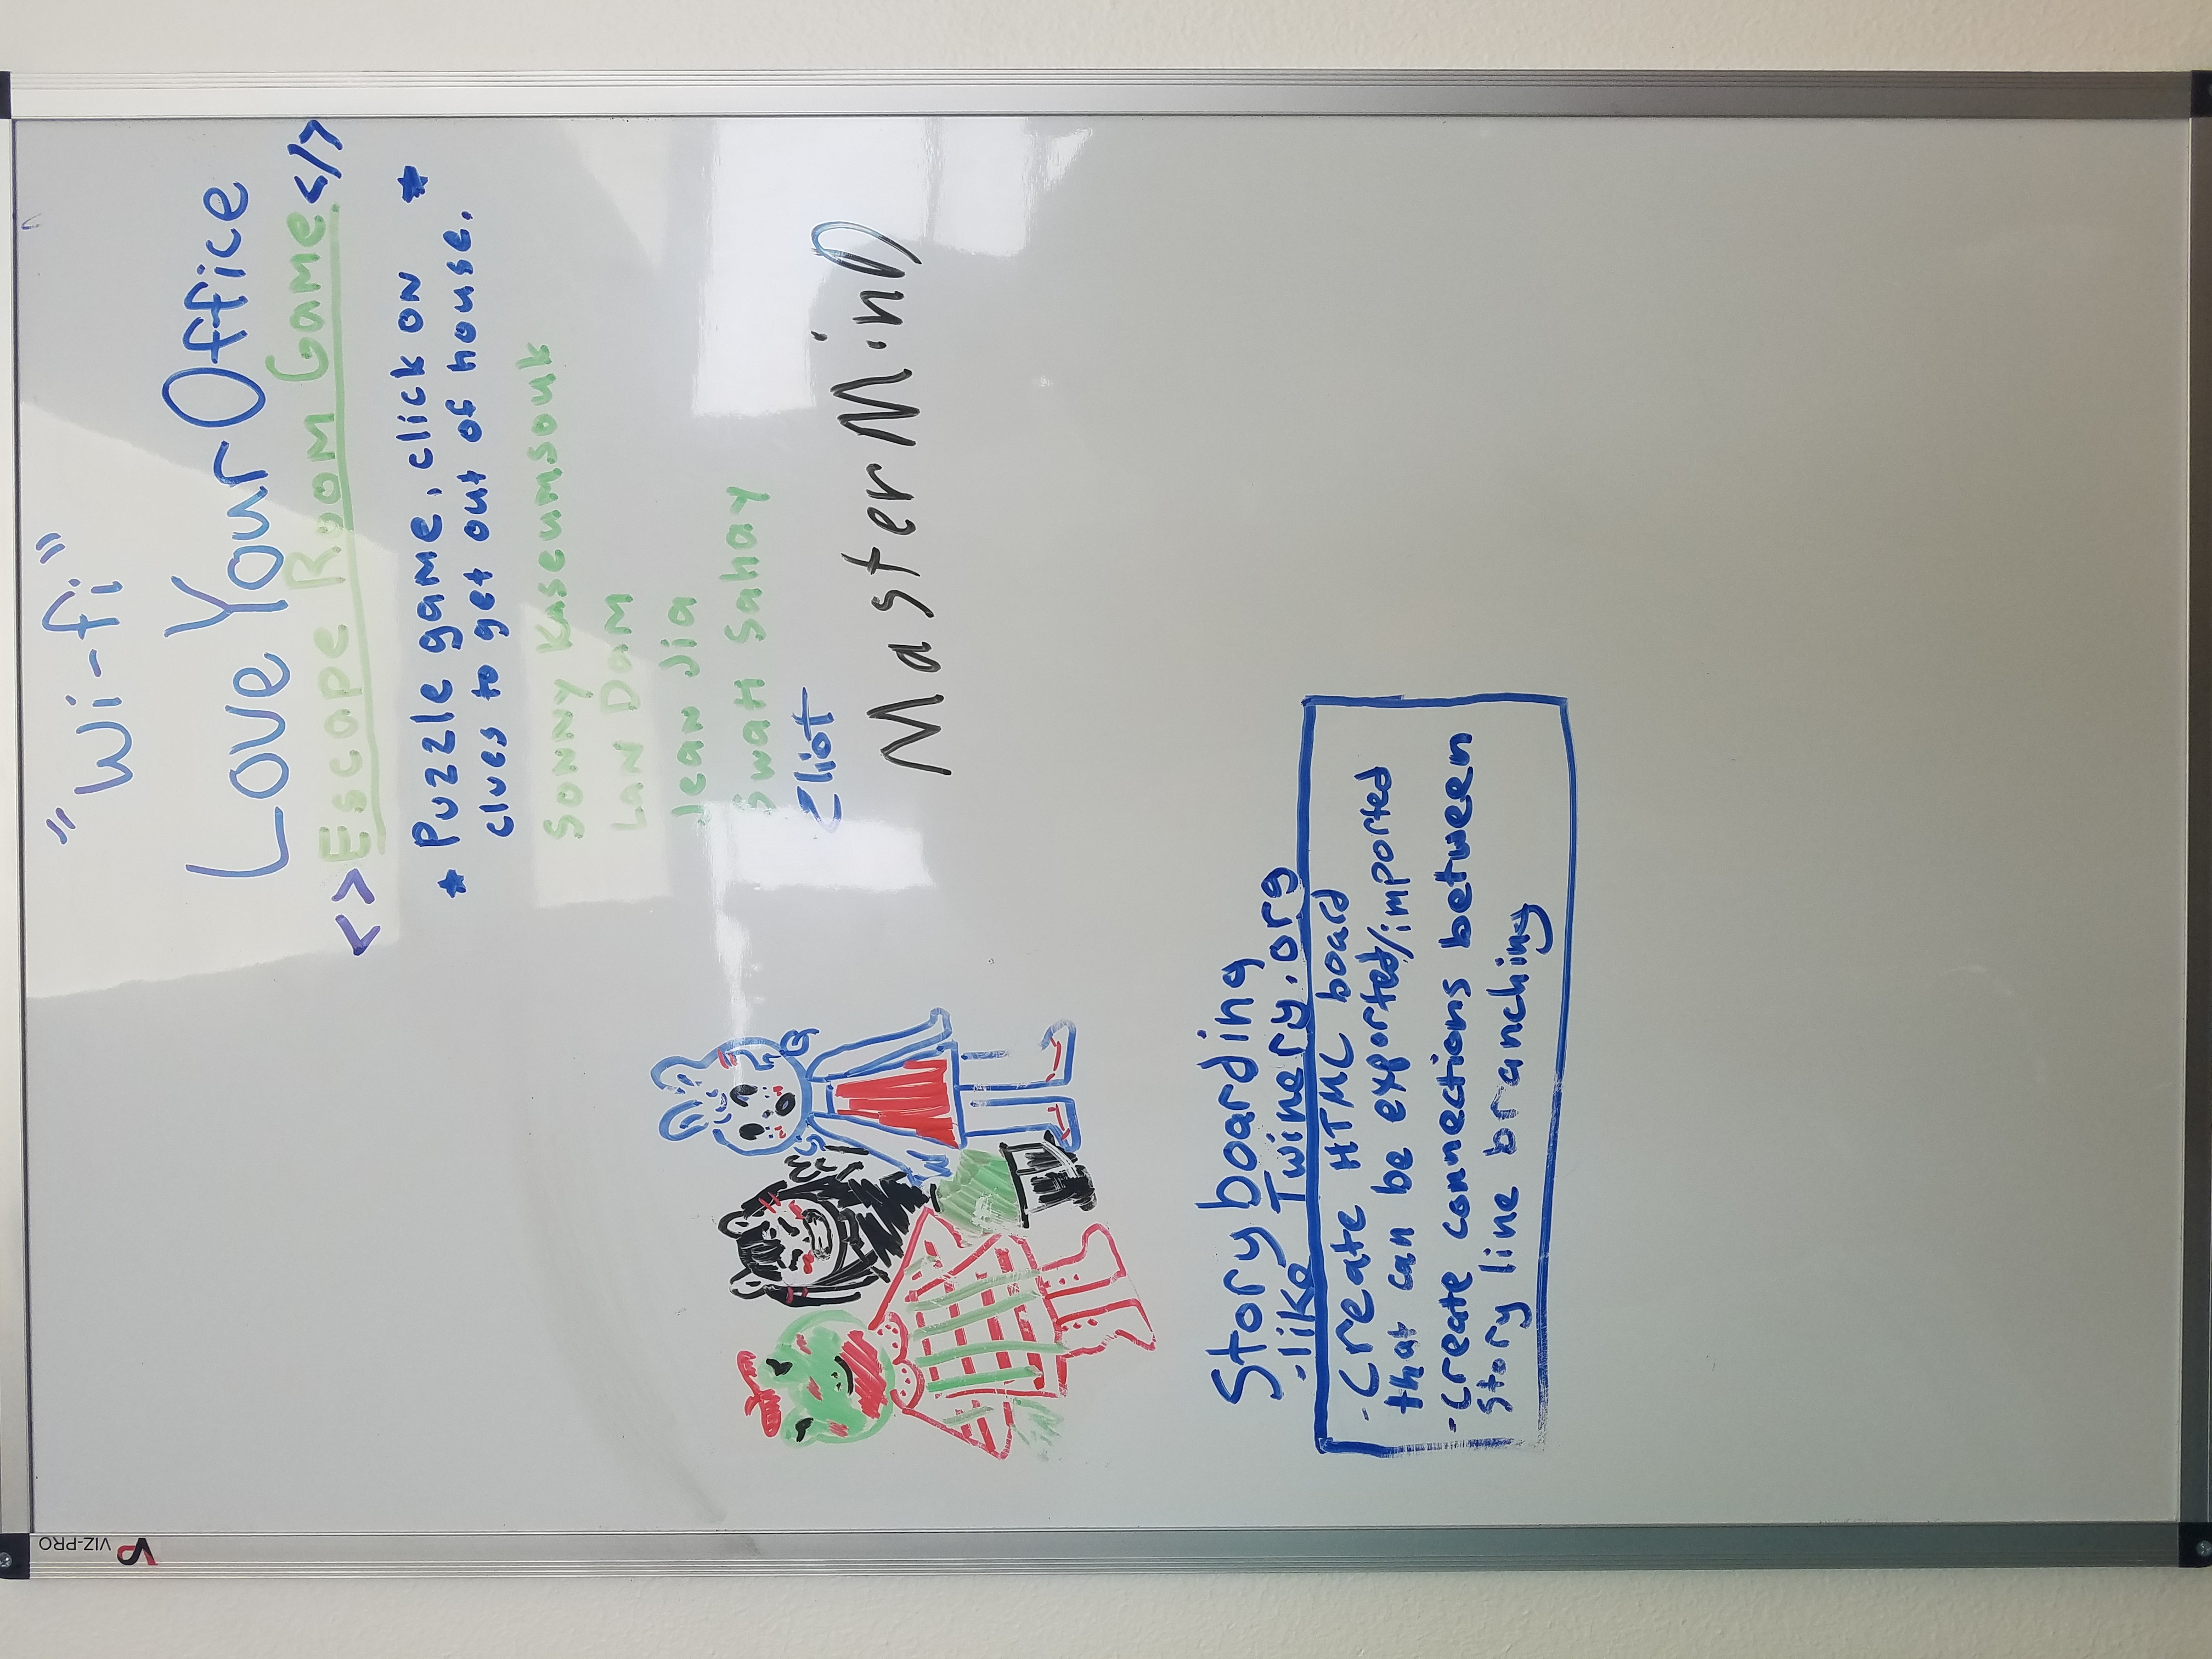 VIZ-PRO
"Wi-fi"
Love Your Office
<> Escape Room Game </>
* Puzzle game, click on *
clues to get out of house.
Sonny Kaseumsouk
Lan Dam
Jean Jia
Swati Sahay
Eliot
MasterMinD
Storyboarding
-like Twinery.org
-Create HTML board
that can be exported/imported
-create connections between
story line branching